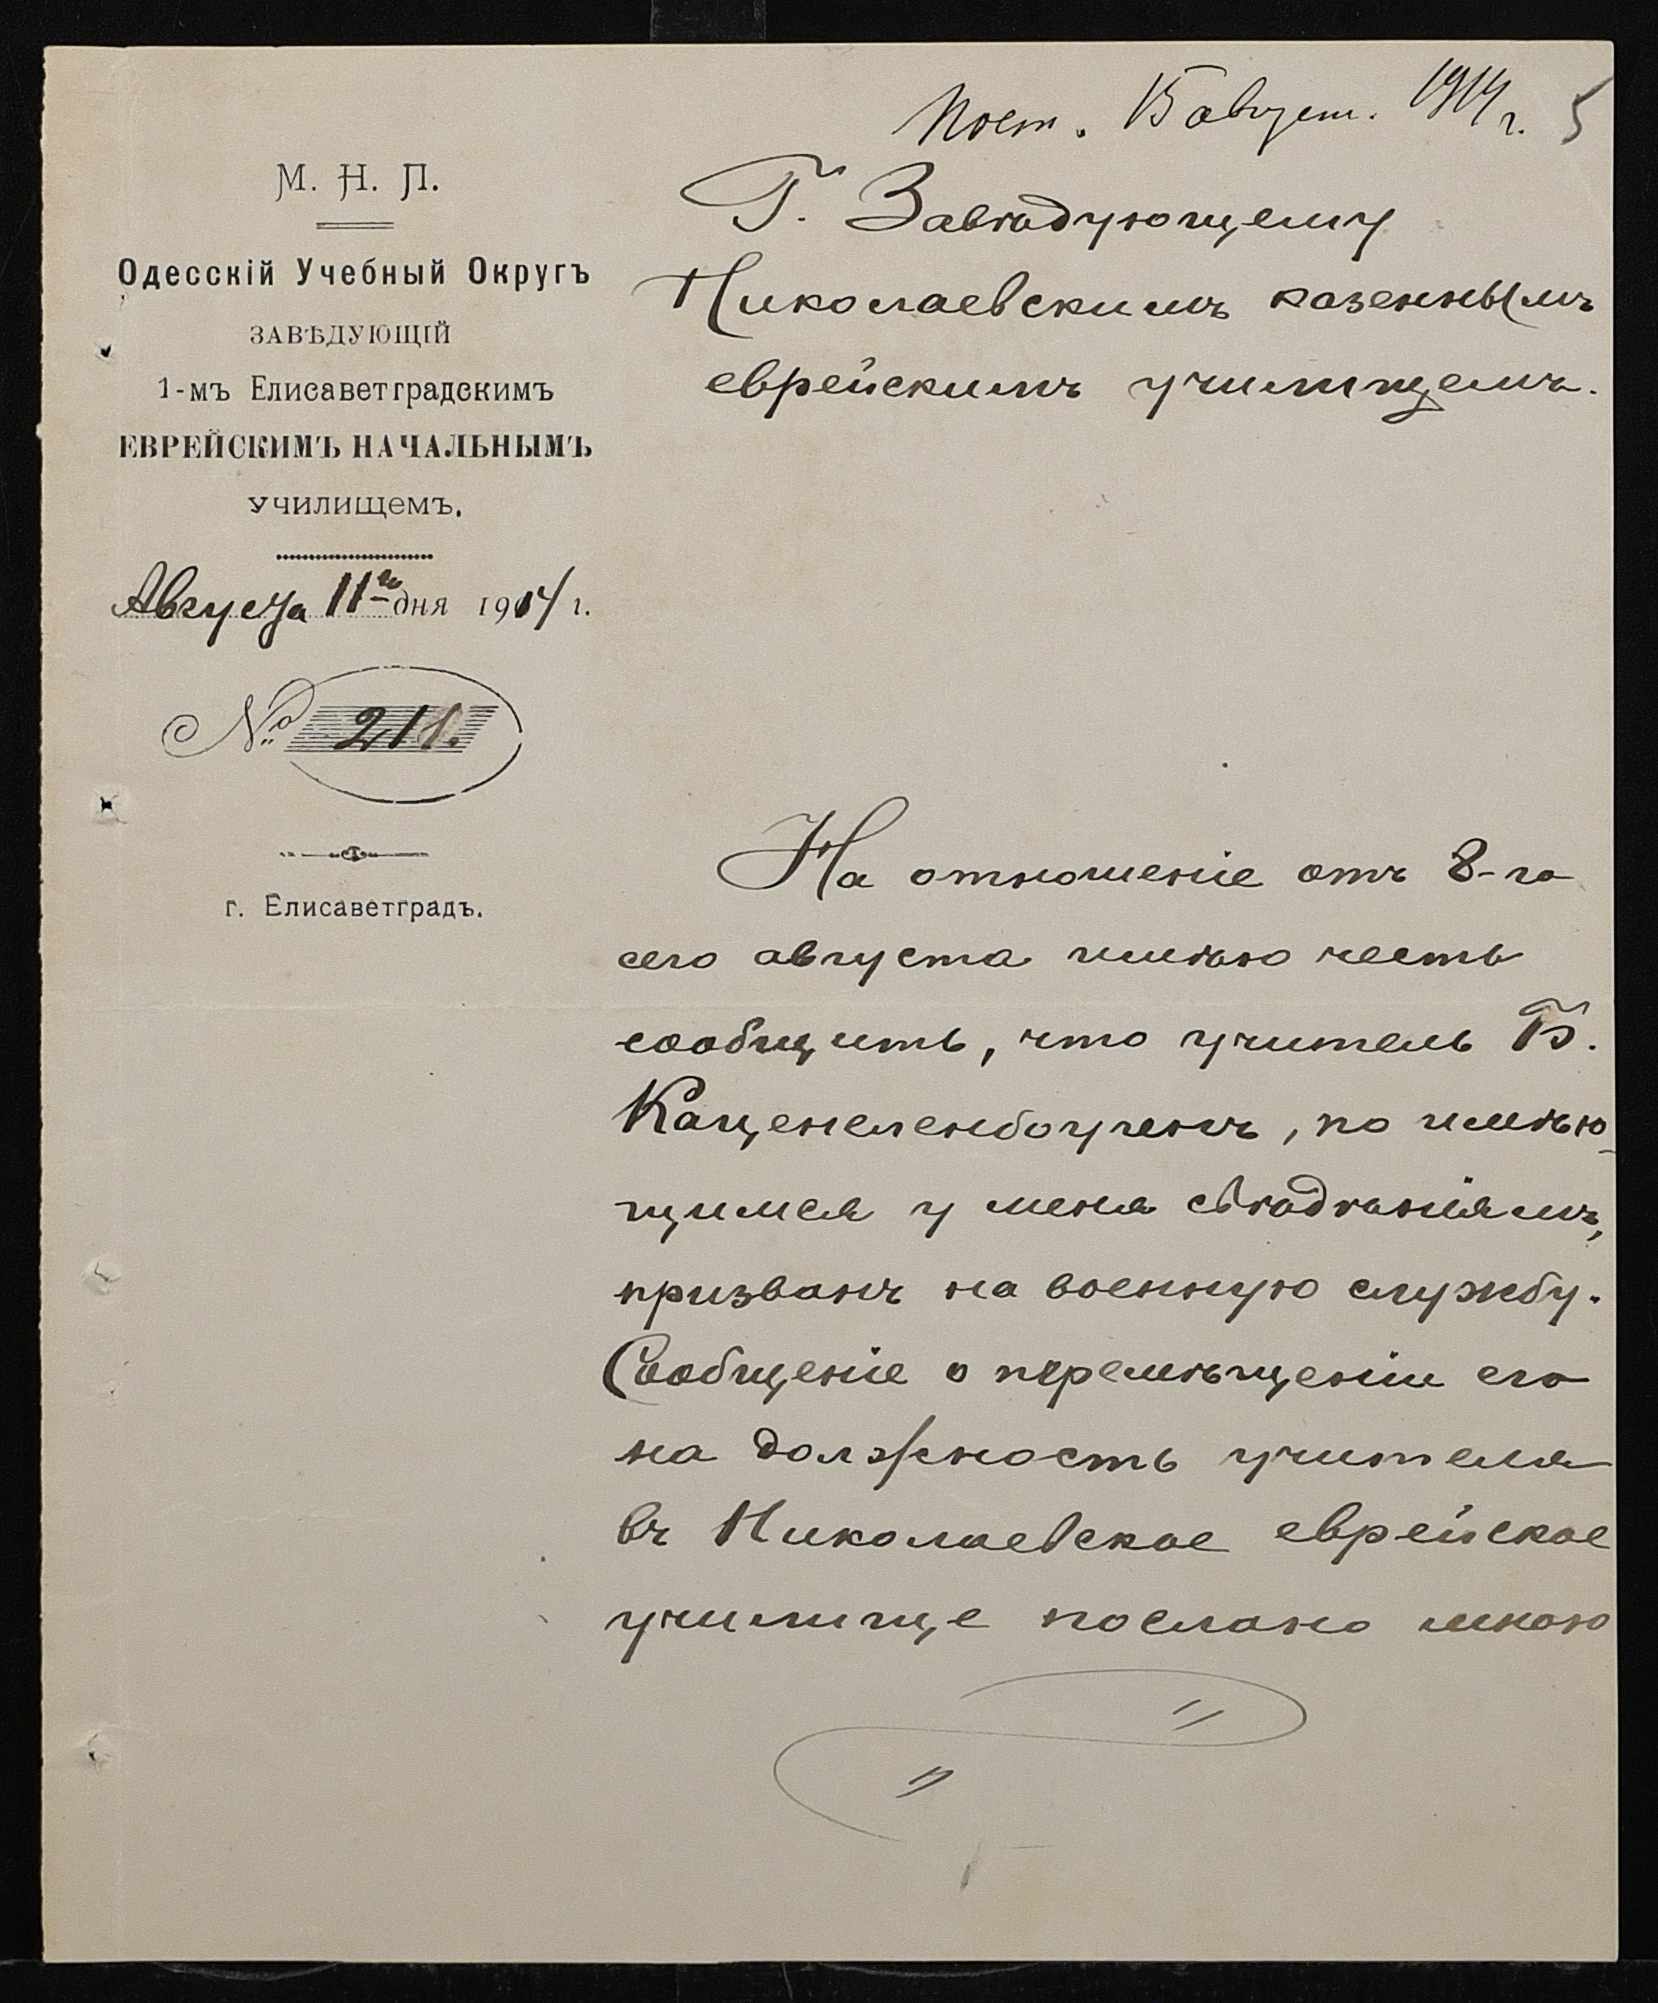 Пост. 15 август. 1914 г. 5
М. Н. П.
Одесскій Учебный Округъ
ЗАВѢДУЮЩІЙ
1-мъ Елисаветградскимъ
ЕВРЕЙСКИМЪ НАЧАЛЬНЫМЪ
УЧИЛИЩЕМЪ.
Августа 11го дня 1914 г.
№ 211.
г. Елисаветградъ.
Г. Завѣдующему
Николаевскимъ казеннымъ
еврейскимъ училищемъ.
На отношеніе отъ 8-го
сего августа имѣю честь
сообщить, что учитель Б.
Каценеленбогенъ, по имѣю-
щимся у меня свѣдѣніямъ,
призванъ на военную службу.
Сообщеніе о перемѣщеніи его
на должность учителя
въ Николаевское еврейское
училище послано мною